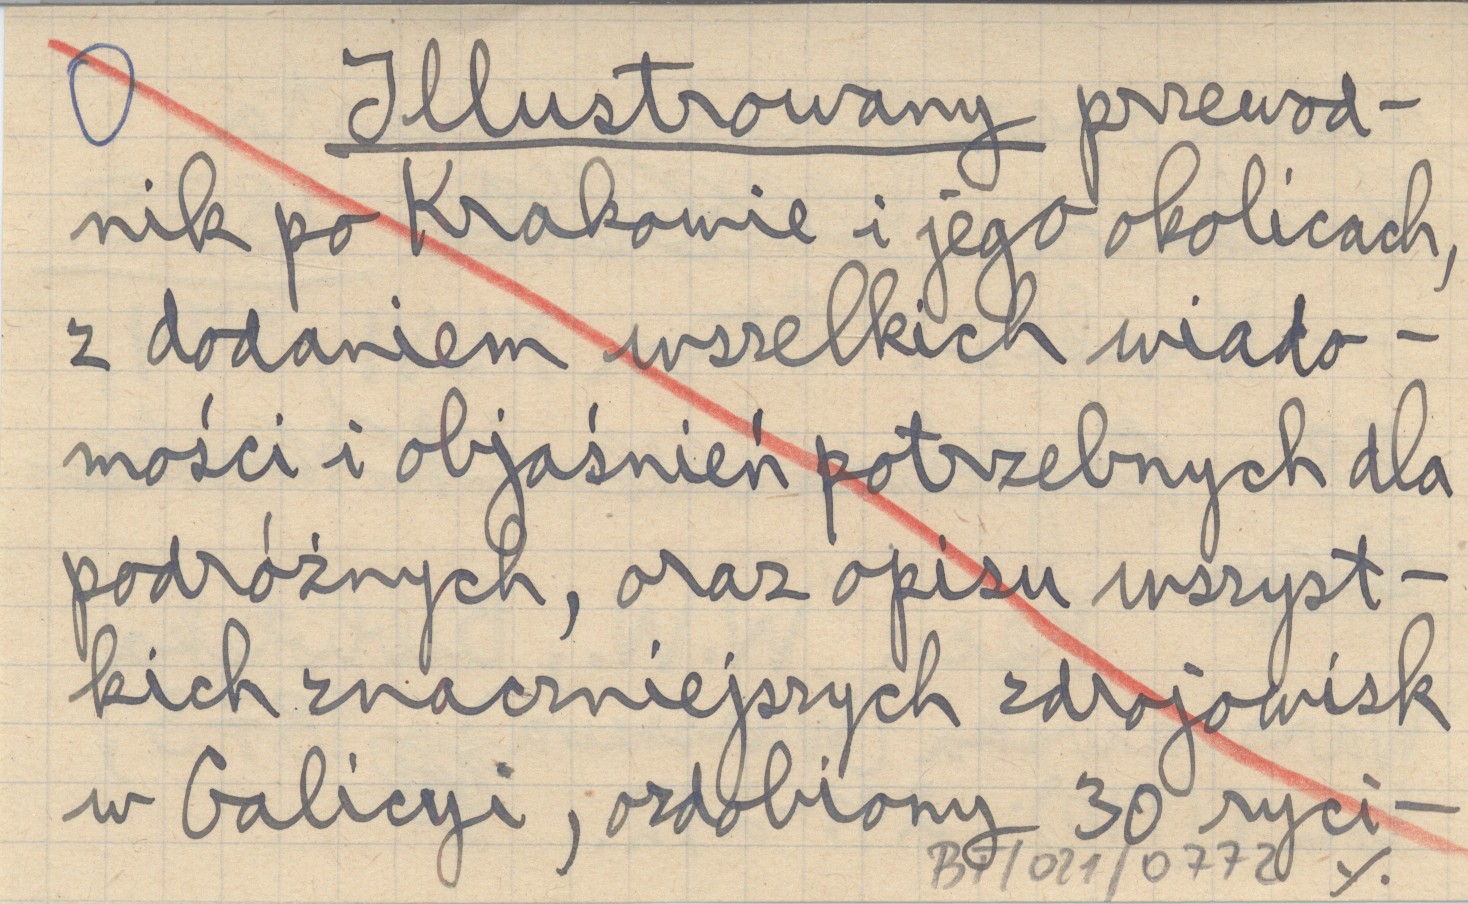 O Illustrowany przewod-
nik po Krakowie i jego okolicach,
z dodaniem wszelkich wiado-
mości i objaśnień potrzebnych dla
podróżnych, oraz opisu wszyst-
kich znaczniejszych zdrojowisk
w Galicyi, ozdobiony 30 ryci-
BJ/021/0772 ./.